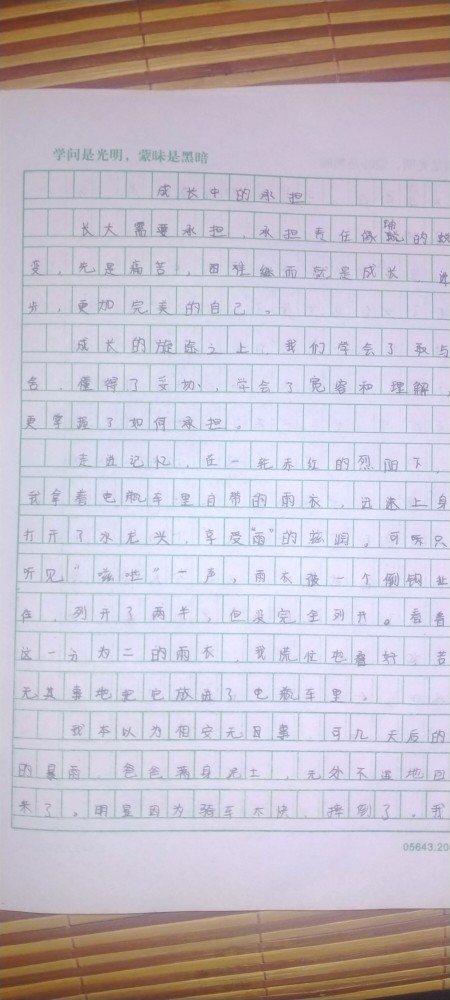 学问是光明，蒙昧是黑暗
成长中的承担
长大需要承担，承担责任像 的
变，先是痛苦，困难继而就是成长
，更加完美的自己。
成长的旅途之上，我们学会了取与
舍，懂得了妥协，学会了宽容和理解，
更掌握了如何承担。
走进记忆，在一轮赤红的烈阳下，
我拿着电瓶车里自带的雨衣，迅速上身
打开了水龙头，享受“雨”的滋润，可听只
听见“嗞啦”一声，雨衣被一个倒钩
住，列开了两半，但没完全列开。看着
这一分为二的雨衣，我慌忙地叠好，若
无其事地把它放进了电瓶车里。
我本以为相安无日事，可几天后的
的暴雨，爸爸满身泥土，无处不湿地回
来了。明显因为骑车太快，摔倒了，我
05643.20